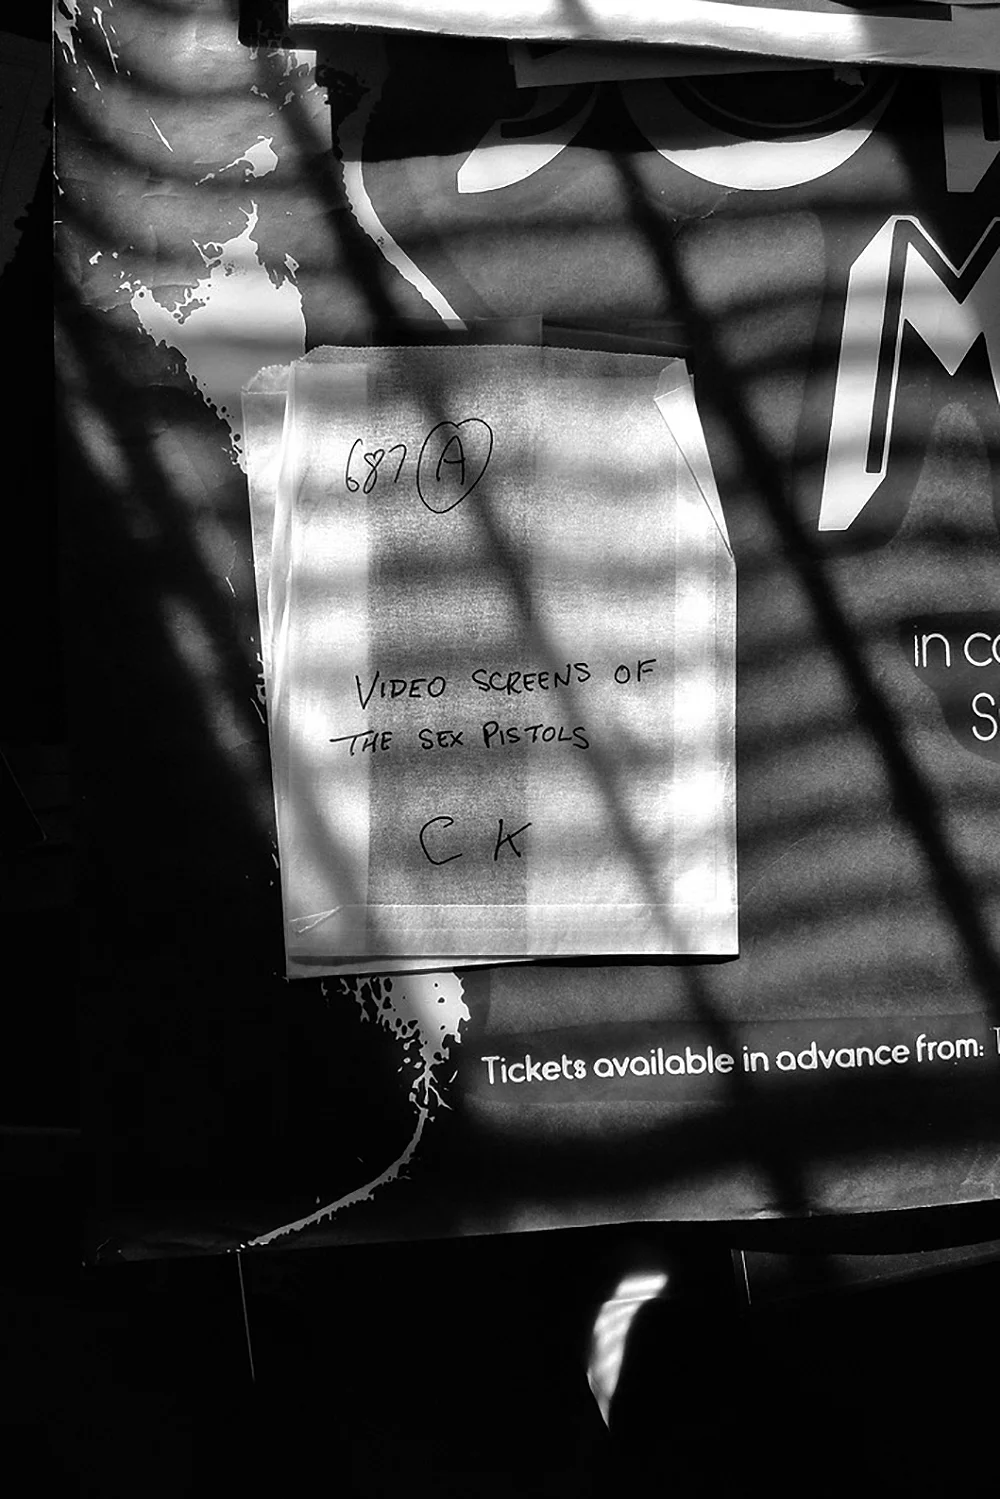 M
687 A
in
VIDEO SCREENS OF
THE SEX PISTOLS
C K
Tickets available in advance from: